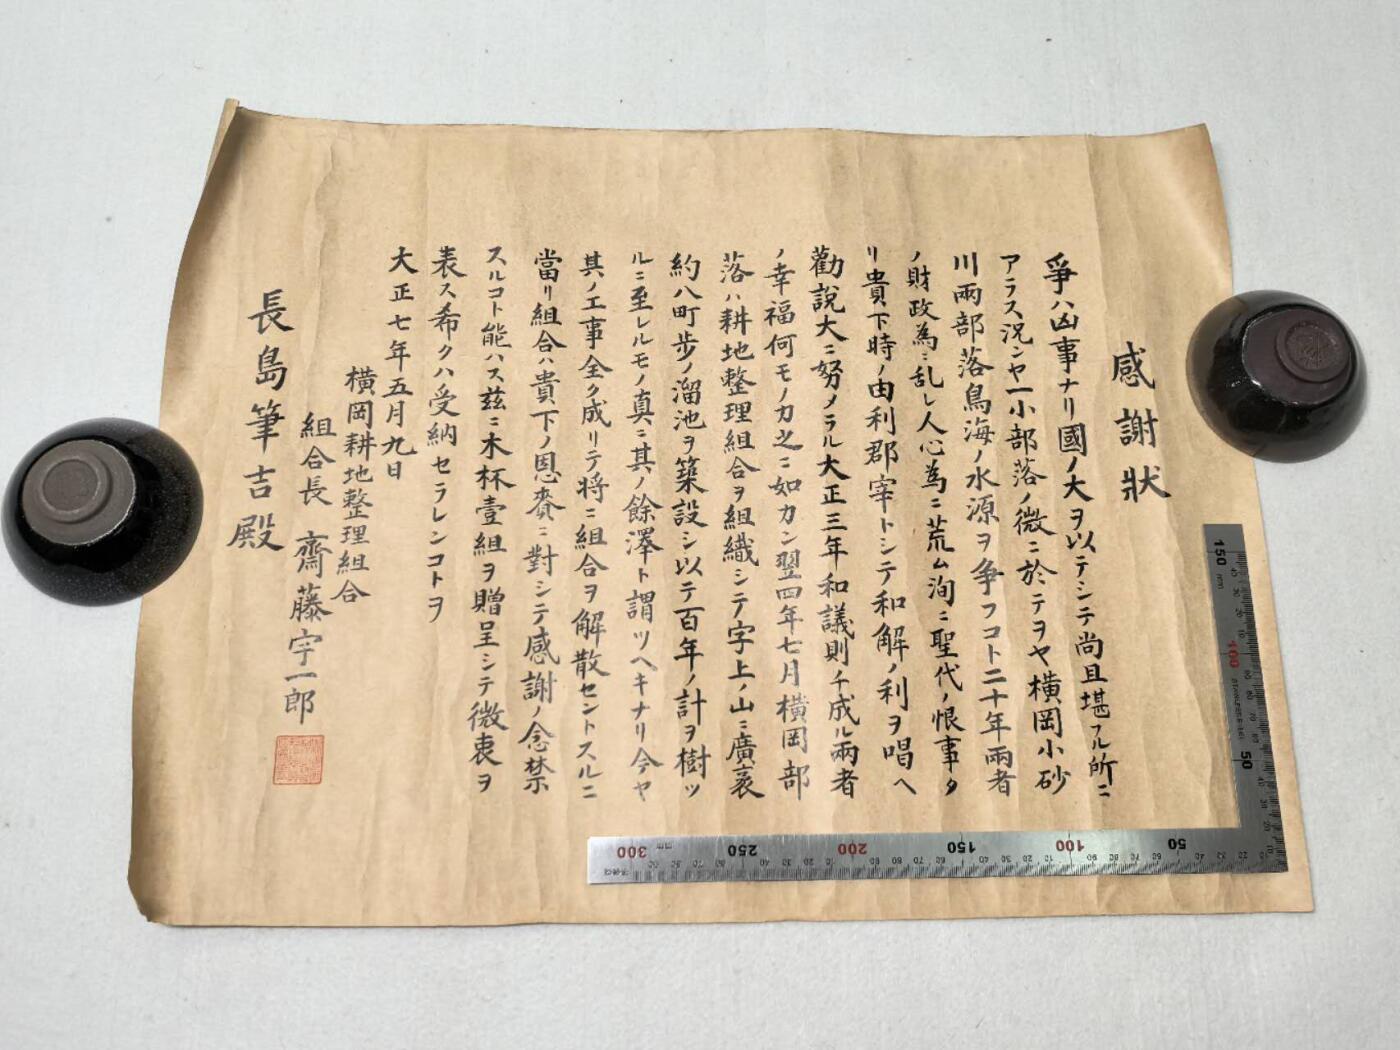 感謝状
爭ハ凶事ナリ國ノ大ヲ以テシテ尚且堪フル所ニ
アラス況ンヤ一小部落ノ微ニ於テヲヤ横岡小砂
川兩部落鳥海ノ水源ヲ争フコト二十年兩者
ノ財政為ニ乱レ人心為ニ荒ム洵ニ聖代ノ恨事タ
リ貴下時ノ由利郡宰トシテ和解ノ利ヲ唱ヘ
勸說大ニ努メラル大正三年和議則チ成ル兩者
ノ幸福何モノカ之ニ如カン翌四年七月横岡部
落ハ耕地整理組合ヲ組織シテ字上ノ山ニ廣袤
約八町歩ノ溜池ヲ築設シ以テ百年ノ計ヲ樹ツ
ルニ至レルモノ真ニ其ノ餘澤ト謂ツヘキナリ今ヤ
其ノ工事全ク成リテ將ニ組合ヲ解散セントスルニ
當リ組合ハ貴下ノ恩賚ニ對シテ感謝ノ念禁
スルコト能ハス茲ニ木杯壹組ヲ贈呈シテ微衷ヲ
表ス希クハ受納セラレンコトヲ
大正七年五月九日
横岡耕地整理組合
組合長 齋藤宇一郎
長島筆吉殿
150 mm
100
50
300
250
200
150
100
50